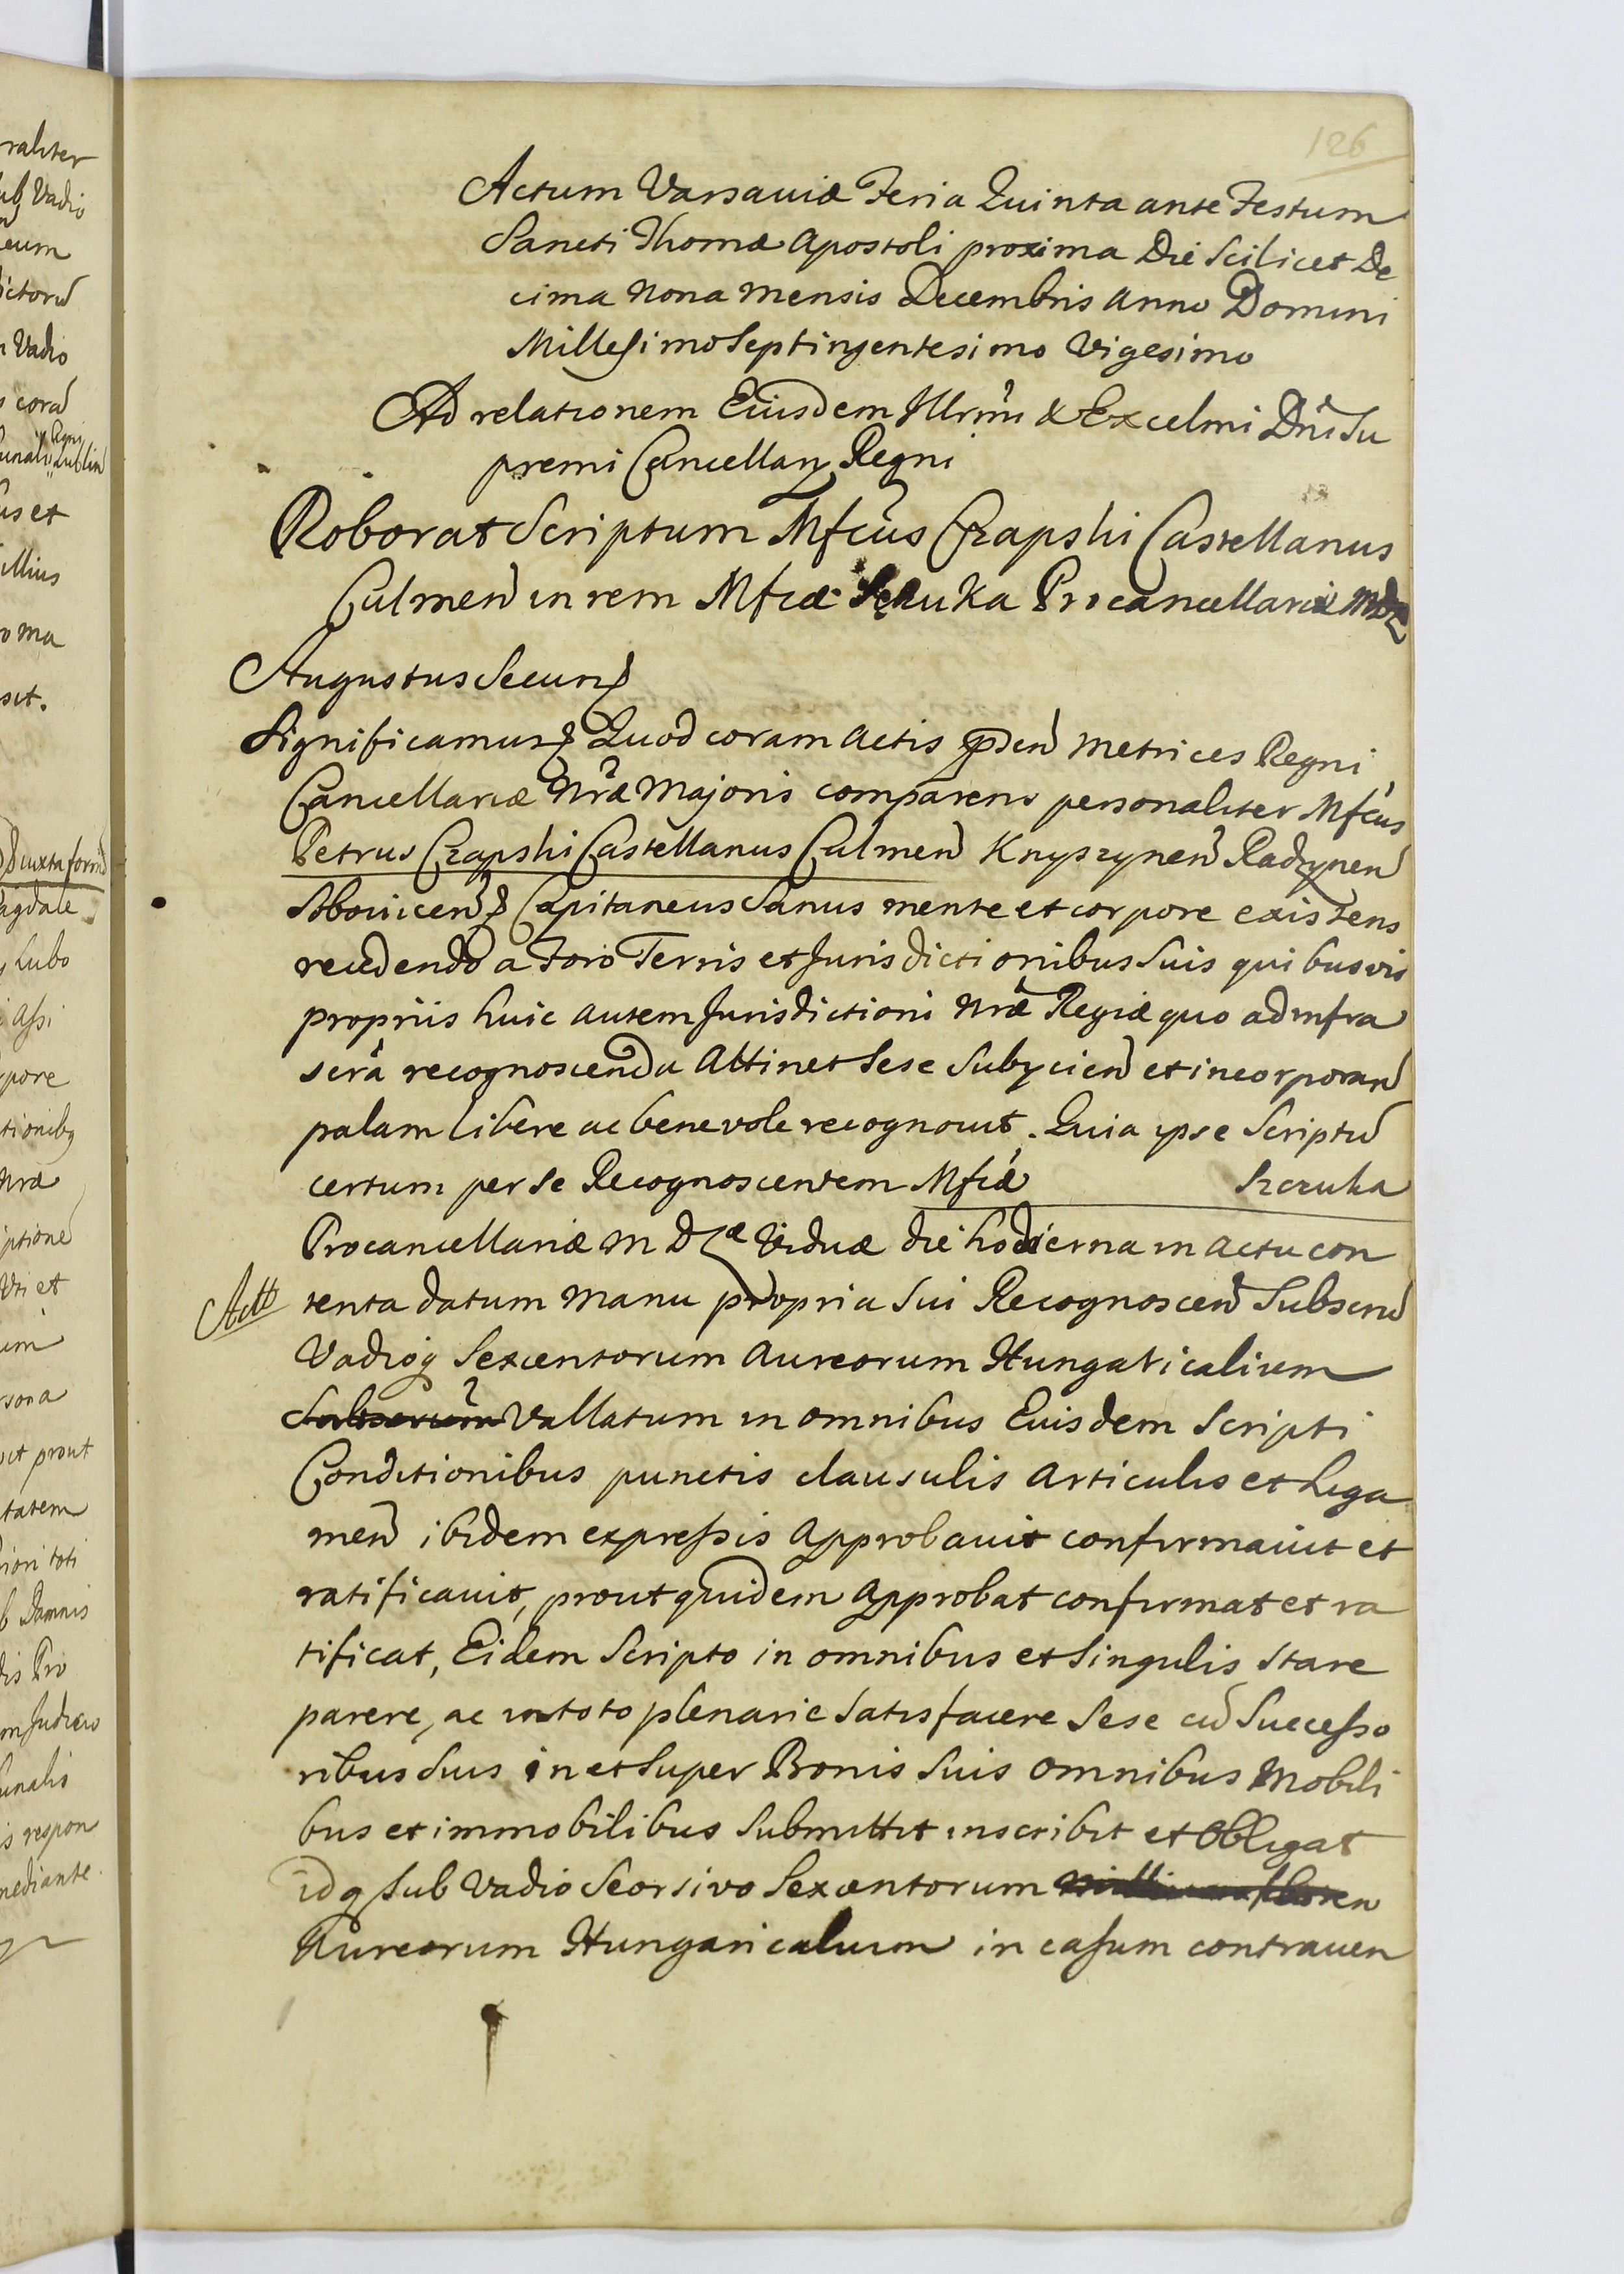 126
Actum Varsaviæ Feria Quinta ante Festum
Sancti Thomæ Apostoli proxima Die Scilicet De
cima Nona Mensis Decembris Anno Domini
Millesimo Septingentesimo Vigesimo
Ad relationem Eiusdem Illrmi & Excelmi Dni Su
premi Cancellarÿ Regni
Roborat Scriptum Mfcus Czapski Castellanus
Culmen in rem Mfcæ Sczuka Procancellariæ MDL
Augustus Secun
Significamus Quod coram Actis pden Metrices Regni
Cancellariæ Nræ Majoris comparens personaliter Mfcus
Petrus Czapski Castellanus Culmen Knyszynen Radzynen
Capitaneus Sanus mente et corpore existens
recedendo a Foro Terris et Jurisdictionibus Suis quibusvis
propriis huic autem Jurisdictioni Nræ Regiæ quo ad infra
scra recognoscenda Attinet Sese Subÿcien et incorporan
palam libere ac benevole recognovit. Quia ipse Scriptu
certum per Se Recognoscentem Mfcæ Szczuka
Procancellariæ M D Læ Viduæ die hodierna in Actu con
tenta datum Manu propria Sui Recognoscen Subscru
Vadioq Sexcentorum Aureorum Hungaricalium
Vallatum in omnibus Euisdem Scripti
Conditionibus punctis clausulis Articulis et Liga
men ibidem expressis Approbavit confirmavit et
ratificavit, prout quidem Approbat confirmat et ra
tificat, Eidem Scripto in omnibus et Singulis Stare
parere, ac in toto plenarie Satisfacere Sese cu Successo
ribus Suis in et Super Bonis Suis Omnibus Mobili
bus et immobilibus Submittit inscribit et Obligat
idq Sub Vadio Seorsivo Sexcentorum
Aureorum Hungaricalium in casum contraven